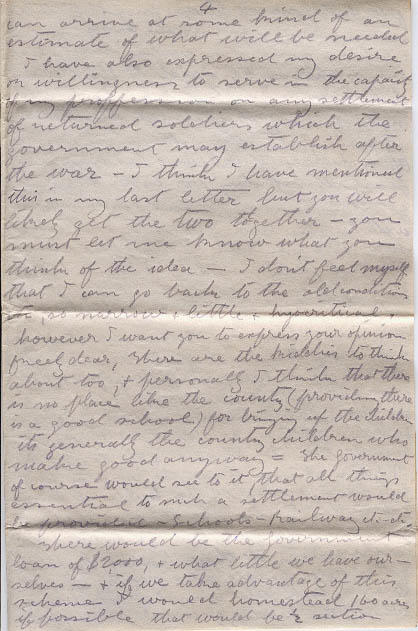 4
can arrive at some kind of an
estimate of what will be needed
I have also expressed my desire
or willingness to serve in the capacity
of my proffession on any settlement
of returned soldiers which the
Government may establish after
the war - I think I have mentioned
this in my last letter but you will
likely get the two together - you
must let me know what you
think of the idea - I don't feel myself
that I can go back to the old condition
so narrow & little & hypocritical,
however I want you to express your opinion
freely dear, there are the kiddies to think
about too, & personally I think that there
is no place like the county (providing there
is a good school) for bringing up the children
its generally the county children who
make good anyway = The government
of course would see to it that all things
essential to such a settlement would
be provided - Schools - Railway
There would be the Government
loan of $2,000, & what little we have our-
selves - & if we take advantage of this
scheme I would homestead 160 acres
if possible that would be ½ section